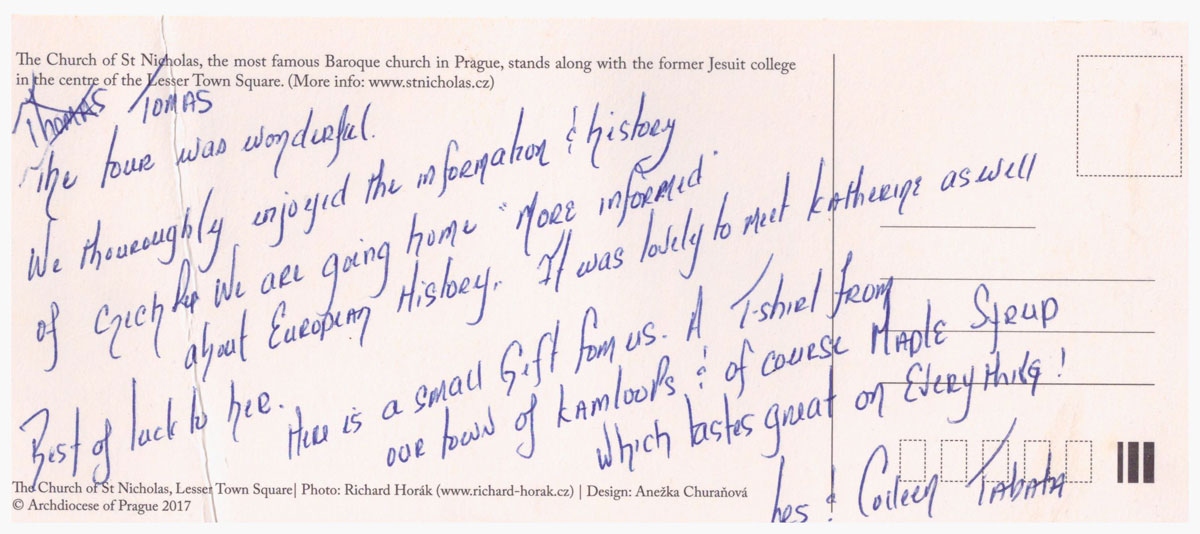 The Church of St Nicholas, the most famous Baroque church in Prague, stands along with the former Jesuit college
in the centre of the Lesser Town Square. (More info: www.stnicholas.cz)
Thomas Tomas
The tour was wonderful.
We thouroughly enjoyed the information & history
of Czech Rep We are going home "more informed"
about European History. It was lovely to meet Katherine as well
Best of luck to her.
Here is a small Gift fom us. A T-shirt from
our town of Kamloops & of course Maple Syrup
which tastes great on Everything!
Les & Coileen Tabata
The Church of St Nicholas, Lesser Town Square| Photo: Richard Horák (www.richard-horak.cz) | Design: Anežka Churaňová
© Archdiocese of Prague 2017